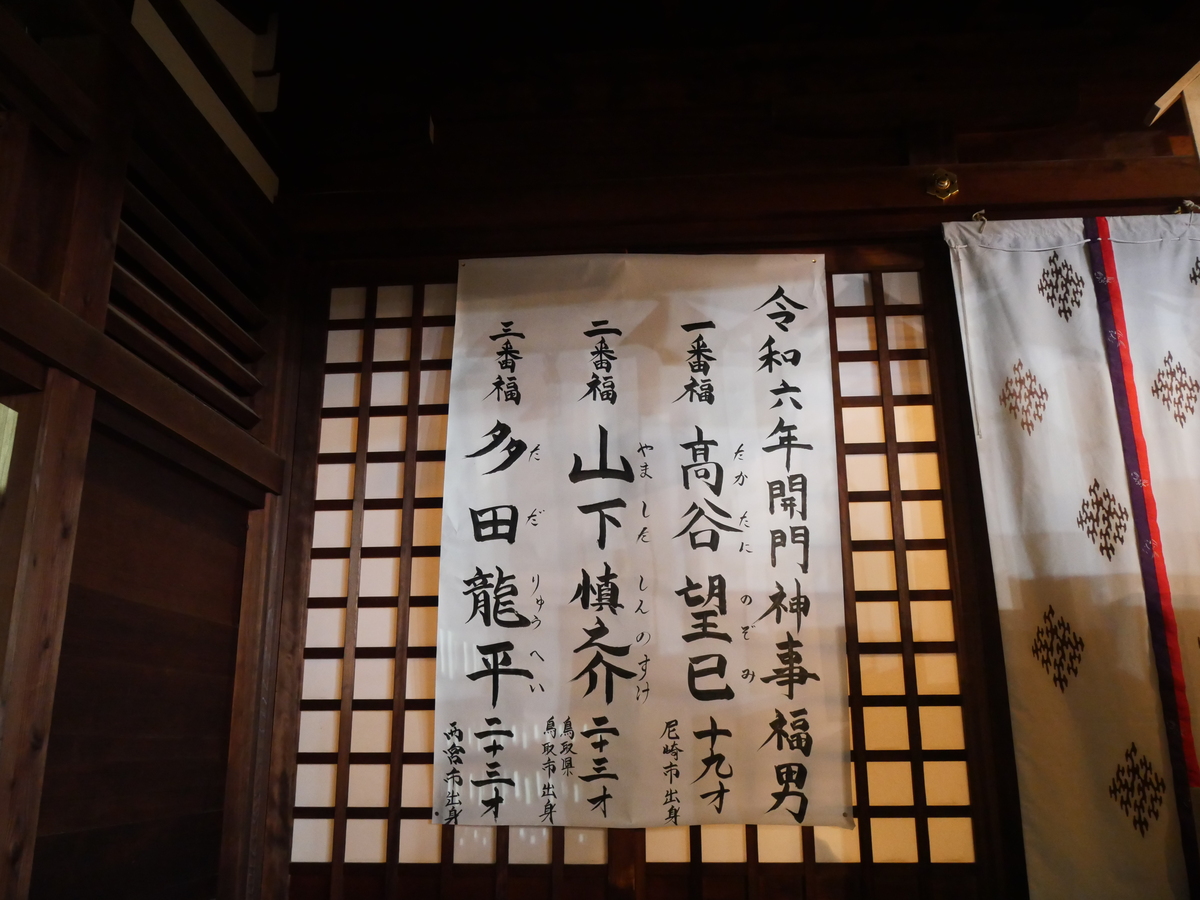 令和六年開門神事福男
一番福 高谷望巳 十九才
たかたに のぞみ
尼崎市出身
二番福 山下慎之介 二十三才
やました しんのすけ
鳥取県
鳥取市出身
三番福 多田龍平 二十三才
ただ りゅうへい
西宮市出身